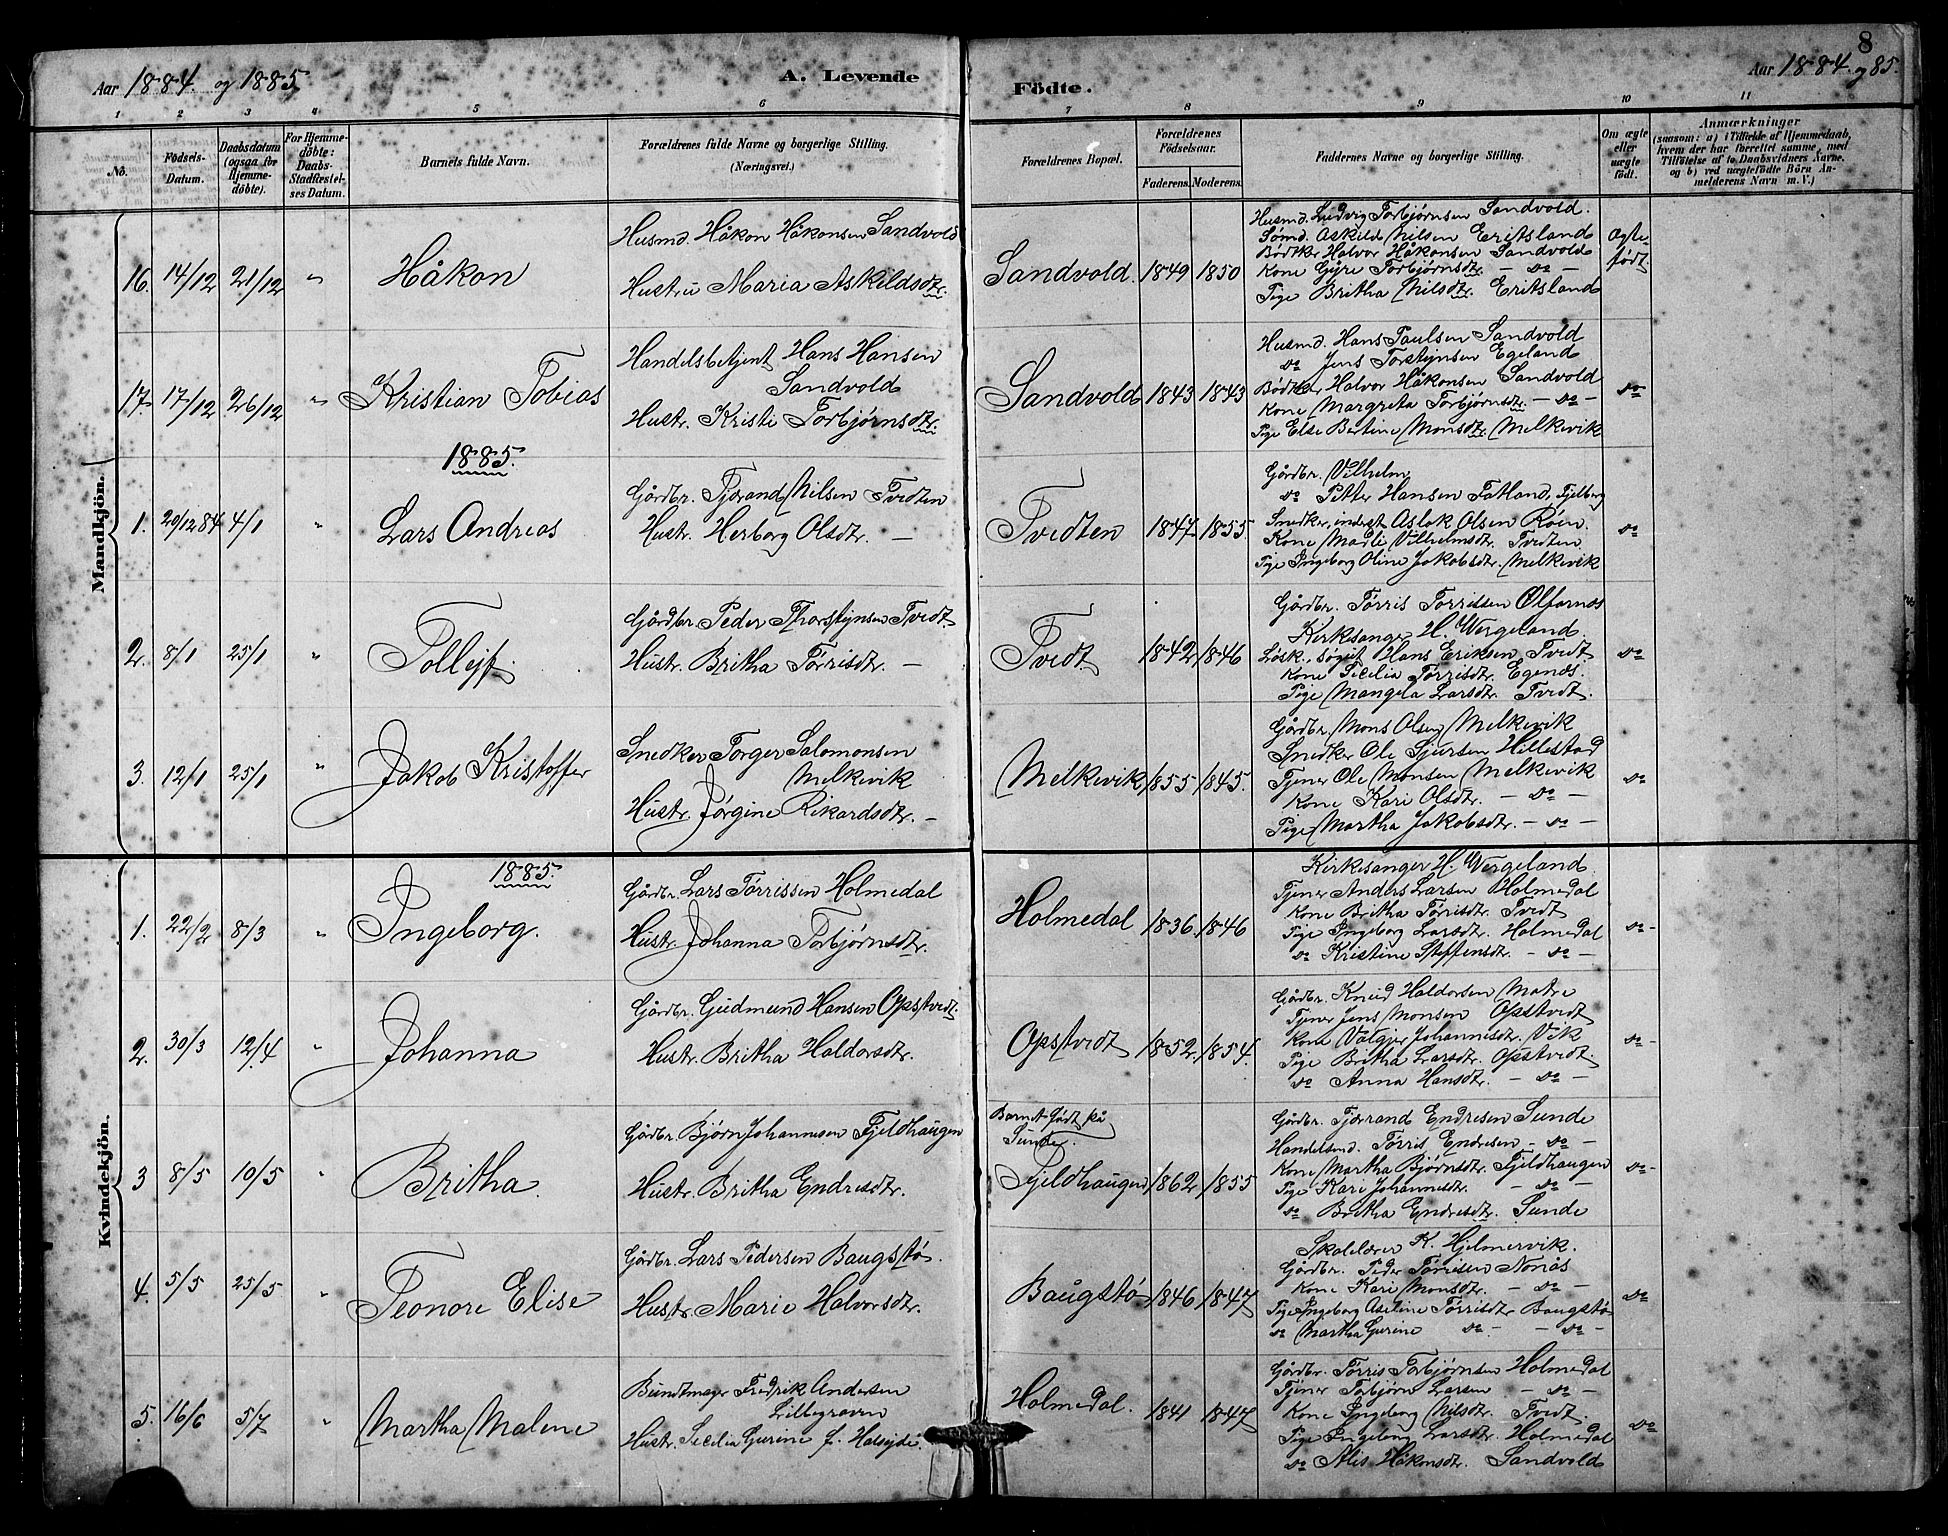 8
Aar 1884. og 1885
A. Levende
Födte.
Aar 1884. og 85.
1 2 3 4 5 6 7 8 9 10 11
No.
Födsels-Datum.
Daabsdatum (ogsaa for Hjemme-döbte).
For Hjemme-döbte: Daabs-Stadfæstel-ses Datum.
Barnets fulde Navn.
Forældrenes fulde Navne og borgerlige Stilling.
(Næringsvei.)
Forældrenes Bopæl.
Forældrenes Födselsaar.
Faderens. Moderens.
Faddernes Navne og borgerlige Stilling.
Om ægte eller uægte födt.
Anmærkninger
(saasom: a) i Tilfælde af Hjemmedaab, hvem der har forrettet samme, med Tilföielse af to Daabsvidners Navne. og b) ved uægtefödte Börn An-melderens Navn m. V.)
Mandkjön.
16. 14/12 21/12 " Håkon
Husmd. Håkon Håkonsen Sandvold
Hustru Maria Askildsdtr.
Sandvold. 1849 1850
Husmd. Ludvig Torbjørnsen Sandvold.
Sømd. Askild Nilsen Eritsland
Bødker Halvor Håkonsen Sandvold
Kone Gyre Torbjørnsdtr. — do —
Pige Britha Nilsdtr. Eritsland
Ægte født
17. 17/12 26/12 " Kristian Tobias
Handelsbetjent Hans Hansen
Sandvold
Hustr. Kristi Torbjørnsdtr.
Sandvold 1843 1843
Husmd. Hans Paulsen Sandvold
do Jens Torstejnsen Egeland
Bødker Halvor Håkonsen Sandvold
Kone Margreta Torbjørnsdtr. — do —
Pige Else Bertine Monsdtr. Melkevik
do
1885.
1. 29/12 84 4/1 " Lars Andreas
Gårdbr. Tjærand Nilsen Tvedten
Hustr. Herborg Olsdtr. —
Tvedten 1847 1855.
Gårdbr. Vilhelm
do Petter Hansen Fatland, Fjelberg
Snedker, inderst Aslak Olsen Røen.
Kone Madli Vilhelmsdtr. Tvedten
Pige Ingeborg Oline Jakobsdtr. Melkevik
do
2. 8/1 25/1 " Tollejf.
Gårdbr. Peder Thorstejnsen Tvedt.
Hustr. Britha Tørrisdtr. —
Tvedt 1842 1846
Gårdbr. Tørris Torrissen Olfarnes
Kirksanger H. Wergeland.
Løsk., søgut Hans Eriksen Tvedt.
Kone Cecilia Tørrisdtr. Egenes.
Pige Mangela Larsdtr. Tvedt.
do
3. 12/1 25/1 " Jakob Kristoffer
Snedker Torger Salomonsen
Melkevik
Hustr. Jørgine Rikardsdtr. —
Melkevik 1855 1845.
Gårdbr. Mons Olsen Melkevik
Snedker Ole Sjursen Hillestad
Tjener Ole Monsen Melkevik
Kone Kari Olsdtr. — do —
Pige Martha Jakobsdtr. — do —
do
Kvindekjön.
1885.
1. 22/2 8/3 " Ingeborg.
Gårdbr. Lars Tørrissen Holmedal
Hustr. Johanna Torbjørnsdtr.
Holmedal 1836 1846
Kirksanger H. Wergeland
Tjener Anders Larsen Holmedal
Kone Britha Tørrisdtr. Tvedt
Pige Ingeborg Larsdtr. Holmedal
do Kristine Steffensdtr. — do —
do
2. 30/3 12/4 " Johanna
Gårdbr. Gudmund Hansen Opstvedt.
Hustr. Britha Haldorsdtr.
Opstvedt 1852. 1854.
Gårdbr. Knud Haldorsen Matre
Tjener Jens Monsen Opstvedt
Kone Valgjer Johannesdtr. Vik
Pige Britha Larsdtr. Opstvedt.
do Anna Hansdtr. — do —
do
3 8/5 10/5 " Britha.
Gårdbr. Bjørn Johannesen Fjeldhaugen
Hustr. Britha Endresdtr.
Barnet født på Sunde.
Fjeldhaugen 1862 1855
Gårdbr. Tjærand Endresen Sunde
Handelsmd. Tørris Endresen — do —
Kone Martha Bjørnsdtr. Fjeldhaugen
Pige Kari Johannesdtr. — do —
do Britha Endresdtr. Sunde
do
4. 5/5 25/5 " Leonore Elise
Gårdbr. Lars Pedersen Baugstø.
Hustr. Marie Halvorsdtr.
Baugstø 1846 1847
Skolelærer K. Hjelmervik.
Gårdbr. Peder Tørrisen Nonås
Kone Kari Monsdtr. — do —
Pige Ingeborg Aseline Tørrisdtr Baugstø
do Martha Gurine do — do —
do
5. 16/6 5/7 " Martha Malene
Bundtmager Fredrik Andersen
Lillegraven
Hustr. Cecilia Gurine f. Halsejde
Holmedal. 1841 1847
Gårdbr. Tørris Torbjørnsen Holmedal
Tjener Torbjørn Larsen — do —
Kone Ingeborg Nilsdtr. Tvedt.
Pige Ingeborg Larsdtr. Holmedal
do Alis Håkonsdtr. Sandvold
do